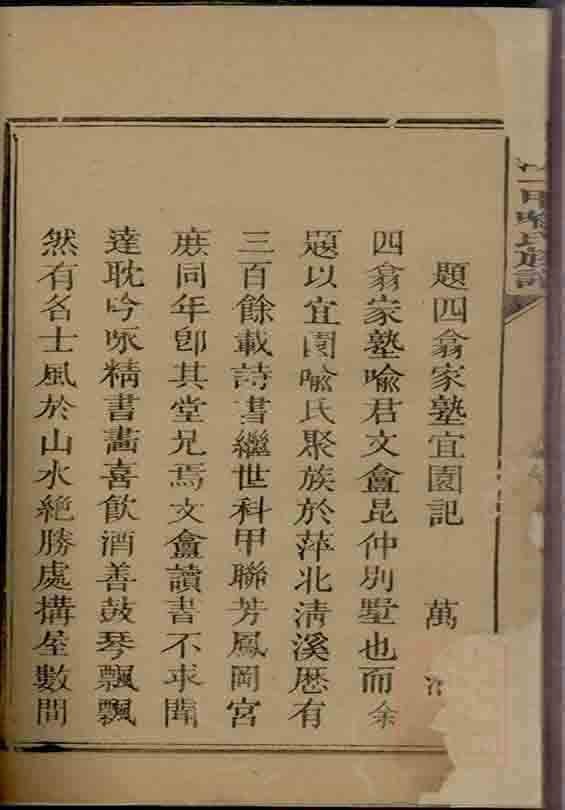 甲喻氏族譜
題四翕家塾宜園記 萬
四翕家塾喻君文盦昆仲別墅也而余
題以宜園喻氏聚族於萍北清溪歷有
三百餘載詩書繼世科甲聯芳鳳岡宮
庶同年卽其堂兄焉文盦讀書不求聞
達耽吟咏精書畵喜飮酒善鼓琴飄飄
然有名士風於山水絶勝處搆屋數間